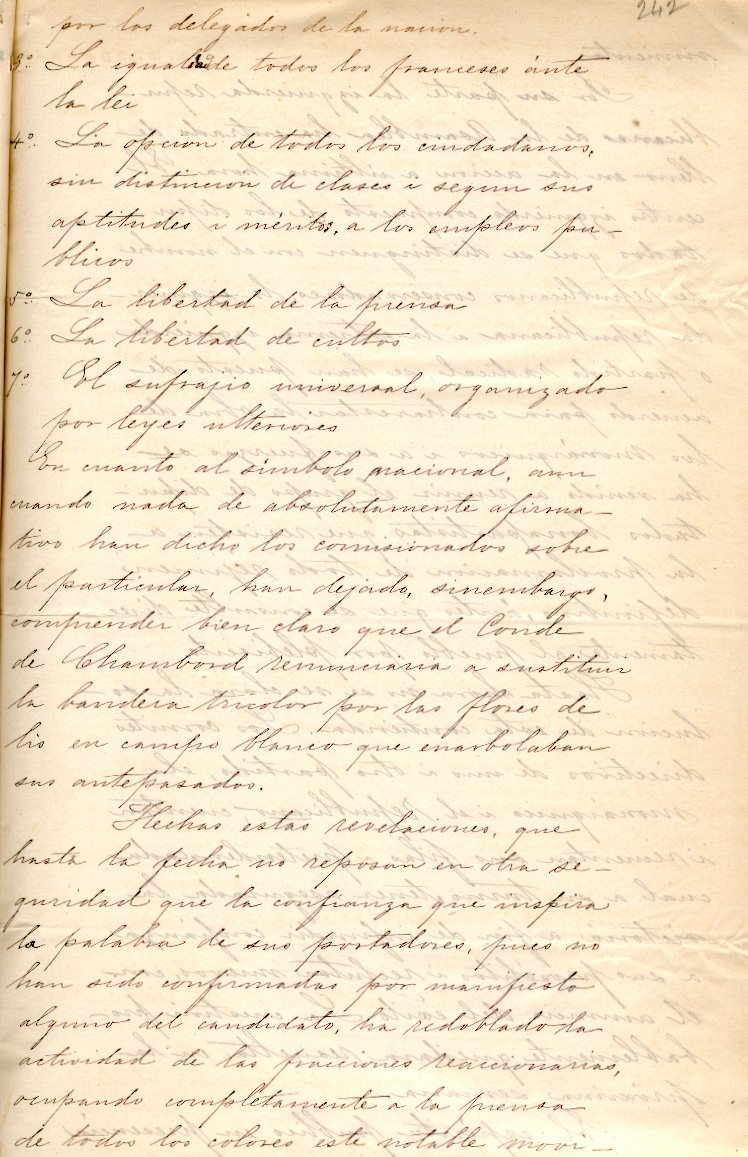 242
por los delegados de la nacion.
3º. La igualdad de todos los franceses ánte
la lei
4º. La opcion de todos los ciudadanos,
sin distincion de clases i segun sus
aptitudes i méritos, a los empleos pu-
blicos
5º. La libertad de la prensa
6º. La libertad de cultos
7º El sufrajio universal, organizado
por leyes ulteriores
En cuanto al simbolo nacional, aun
cuando nada de absolutamente afirma-
tivo han dicho los comisionados sobre
el particular, han dejado, sinembargo,
comprender bien claro que el Conde
de Chambord renunciaria a sustituir
la bandera tricolor por las flores de
lis en campo blanco que enarbolaban
sus antepasados.
Hechas estas revelaciones, que
hasta la fecha no reposan en otra se-
guridad que la confianza que inspira
la palabra de sus portadores, pues no
han sido confirmadas por manifiesto
alguno del candidato, ha redoblado la
actividad de las fracciones reaccionarias,
ocupando completamente a la prensa
de todos los colores este notable movi-